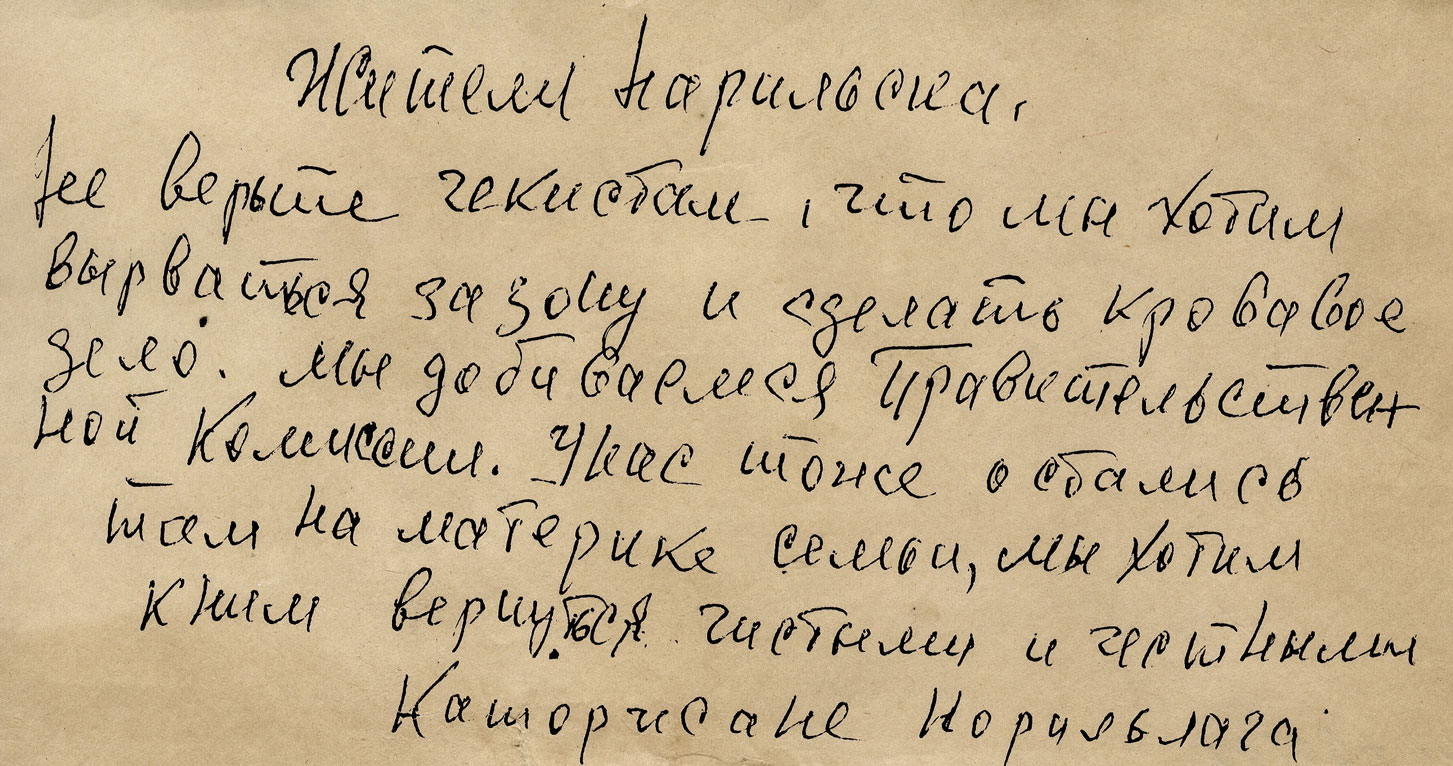 Жители Нарильска,
Не верьте чекистам, что мы хотим
вырваться за зону и сделать кровавое
дело. Мы добиваемся Правительствен
ной Комиссии. У нас тоже остались
там на материке семьи, мы хотим
к ним вернуться чистыми и честными
Каторжане Норильлага